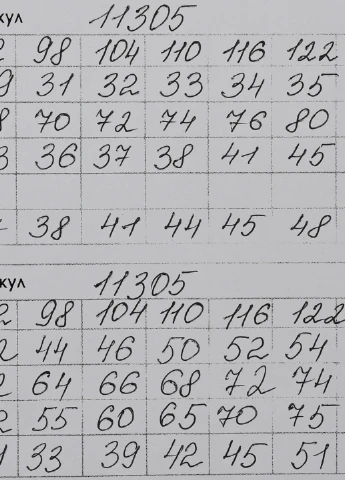 кул 11305
2 98 104 110 116 122
9 31 32 33 34 35
8 70 72 74 76 80
3 36 37 38 41 45
38 41 44 45 48
кул 11305
2 98 104 110 116 122
2 44 46 50 52 54
2 64 66 68 72 74
2 55 60 65 70 75
1 33 39 42 45 51